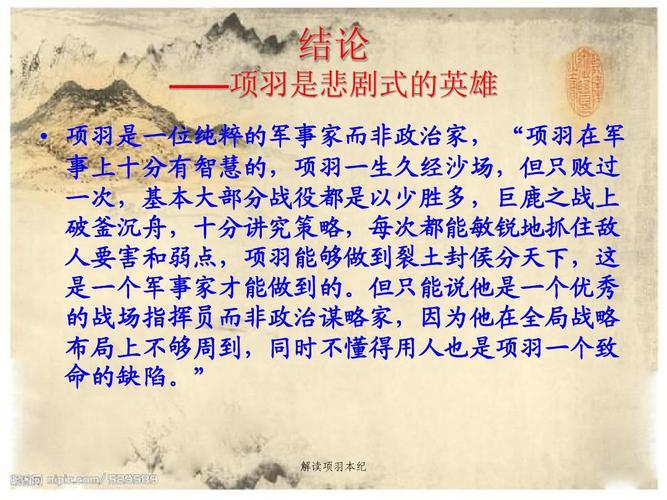 结论
——项羽是悲剧式的英雄
• 项羽是一位纯粹的军事家而非政治家，“项羽在军
事上十分有智慧的，项羽一生久经沙场，但只败过
一次，基本大部分战役都是以少胜多，巨鹿之战上
破釜沉舟，十分讲究策略，每次都能敏锐地抓住敌
人要害和弱点，项羽能够做到裂土封侯分天下，这
是一个军事家才能做到的。但只能说他是一个优秀
的战场指挥员而非政治谋略家，因为他在全局战略
布局上不够周到，同时不懂得用人也是项羽一个致
命的缺陷。”
解读项羽本纪
昵图网 nipic.com/529589